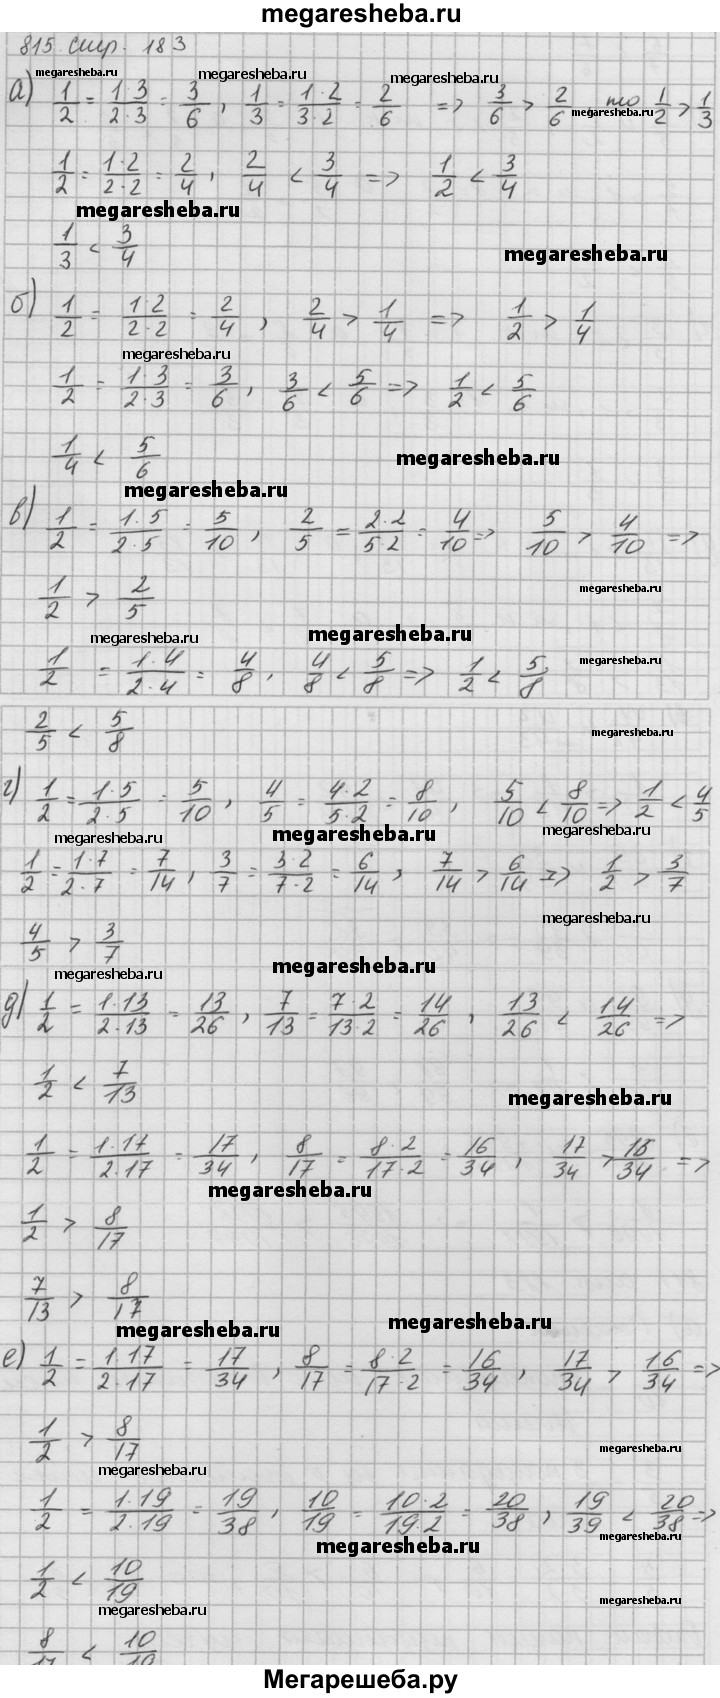 megaresheba.ru
815 стр. 183
megaresheba.ru megaresheba.ru megaresheba.ru
а) 1/2 = 1·3/2·3 = 3/6, 1/3 = 1·2/3·2 = 2/6 => 3/6 > 2/6, то 1/2 > 1/3
megaresheba.ru
1/2 = 1·2/2·2 = 2/4, 2/4 < 3/4 => 1/2 < 3/4
megaresheba.ru
1/3 < 3/4
megaresheba.ru
б) 1/2 = 1·2/2·2 = 2/4, 2/4 > 1/4 => 1/2 > 1/4
megaresheba.ru
1/2 = 1·3/2·3 = 3/6, 3/6 < 5/6 => 1/2 < 5/6
1/4 < 5/6
megaresheba.ru
megaresheba.ru
в) 1/2 = 1·5/2·5 = 5/10, 2/5 = 2·2/5·2 = 4/10 => 5/10 > 4/10 =>
1/2 > 2/5
megaresheba.ru
megaresheba.ru megaresheba.ru
1/2 = 1·4/2·4 = 4/8, 4/8 < 5/8 => 1/2 < 5/8
megaresheba.ru
2/5 < 5/8
megaresheba.ru
г) 1/2 = 1·5/2·5 = 5/10, 4/5 = 4·2/5·2 = 8/10, 5/10 < 8/10 => 1/2 < 4/5
megaresheba.ru megaresheba.ru megaresheba.ru
1/2 = 1·7/2·7 = 7/14, 3/7 = 3·2/7·2 = 6/14, 7/14 > 6/14 => 1/2 > 3/7
megaresheba.ru
4/5 > 3/7
megaresheba.ru megaresheba.ru
д) 1/2 = 1·13/2·13 = 13/26, 7/13 = 7·2/13·2 = 14/26, 13/26 < 14/26 =>
1/2 < 7/13
megaresheba.ru
1/2 = 1·17/2·17 = 17/34, 8/17 = 8·2/17·2 = 16/34, 17/34 > 16/34 =>
megaresheba.ru
1/2 > 8/17
7/13 > 8/17
megaresheba.ru megaresheba.ru
е) 1/2 = 1·17/2·17 = 17/34, 8/17 = 8·2/17·2 = 16/34, 17/34 > 16/34 =>
1/2 > 8/17
megaresheba.ru
megaresheba.ru
1/2 = 1·19/2·19 = 19/38, 10/19 = 10·2/19·2 = 20/38, 19/39 < 20/38 =>
megaresheba.ru megaresheba.ru
1/2 < 10/19
megaresheba.ru megaresheba.ru
8/17 < 10/19
Мегарешеба.ру